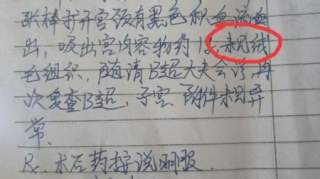 张棒扩开宫颈有黑色积血流
出，吸出宫内容物约1.未见绒
毛组织，再请B超大夫会诊，再
次复查B超，子宫附件未见异
常。
R. 术后药按说明服